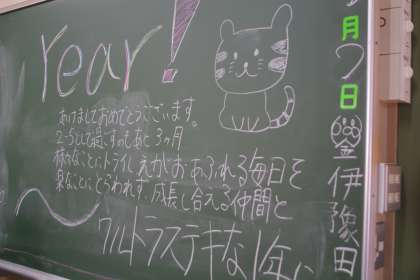 Year!
あけましておめでとうございます。
2-5として過ごすのもあと3ヶ月。
様々なことにトライし、えがおあふれる毎日を
臭なことにとらわれず、成長し合える仲間と
ウルトラステキな1年に
月
7
日
金
伊
豫
田